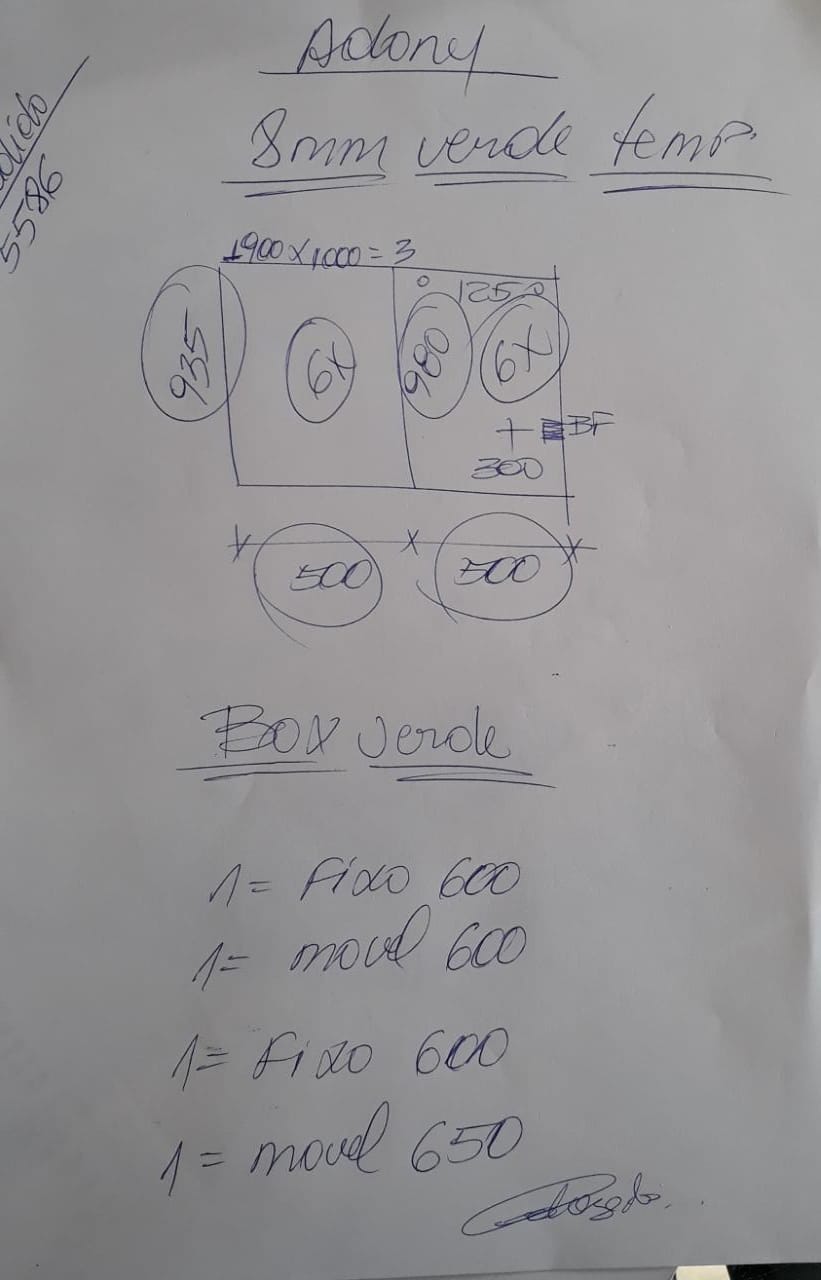 Adony
5586
8mm verde temp.
1900x1000=3
1250
935
6x
980
6x
BF
300
500
500
Box verde
1= Fixo 600
1= movel 600
1= Fixo 600
1= movel 650